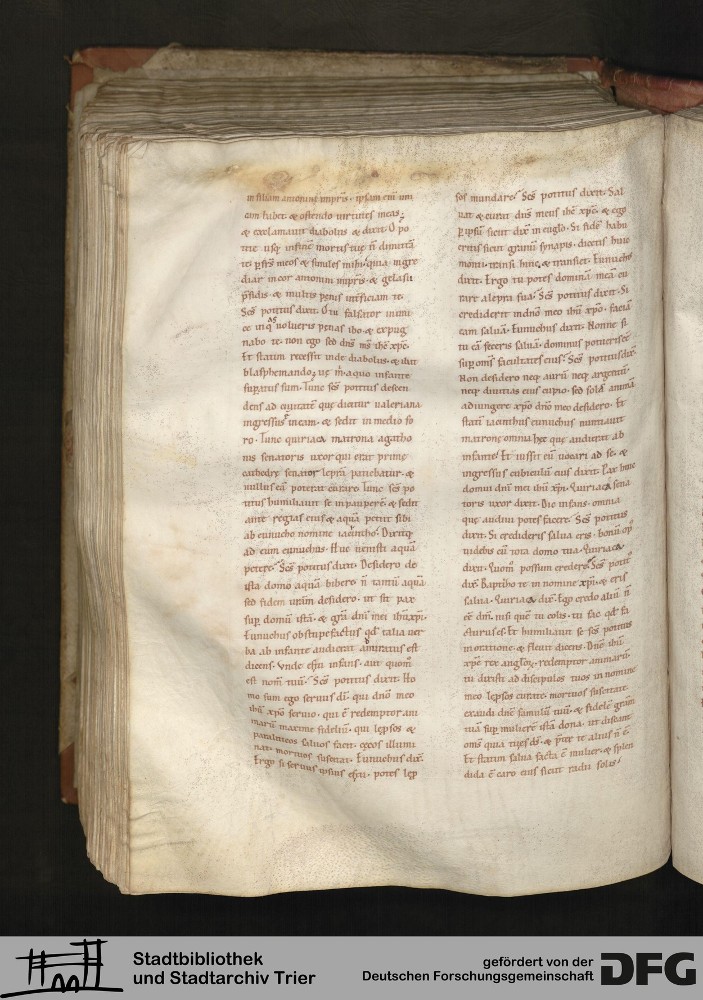 in filiam antonini impris. ipsam eni uni
cam habet. & ostendo uirtutes meas.
& exclamauit diabolus & dixit. O po
tite usq; infine mortis tue n dimitta
te. pfrs meos & similes mihi. quia ingre
diar in cor antonini impris. & gelasii
psidis. & multis penis interficiam te.
Scs potitus dixit. O tu falsator inimi
ce in quas uolueris penas ibo. & expug
nabo te. non ego sed dns ms ihc xpc.
Et statim recessit inde diabolus. &
blasphemando. ue m. a quo infante
supatus sum. Tunc scs potitus descen
dens ad ciuitate que dicitur ualeriana
ingressus in eam. & sedit in medio fo
ro. Tunc quiriaca matrona agatho
nis senatoris uxor qui erat prime
cathedre senator lepra patiebatur. &
nullus ea poterat curare. Tunc scs po
titus humiliauit se in paupere. & sedit
ante regias eius & aqua petiit sibi
ab eunucho nomine iacintho. Dixitq;
ad eum eunuchus. Huc uenisti aqua
petere? Scs potitus dixit. Desidero de
ista domo aqua bibere. n tamu aqua
sed fidem uram desidero. ut sit pax
sup domu ista. & gra dni mei ihu xpi.
Eunuchus obstupefactus qd talia uer
ba ab infante audierat. amiratus est
dicens. Vnde es infans. aut quom
est nom tuu? Scs potitus dixit. Ho
mo sum ego seruus di. qui dno meo
ihu xpo seruio. qui e redemptor ani
maru maxime fideliu. qui lepsos &
paraliticos saluos facit. cecos illumi
nat. mortuos suscitat. Eunuchus dix.
Ergo si seruus ipsius es. potes lep
sos mundare? Scs potitus dixit. Sal
uat & curat dns meus ihc xpc. & ego
p ipsu sicut dix in euglo. Si fide habu
eritis sicut granu synapis. dicetis huic
monti. transi hinc. & transiet. Eunuchus
dixit. Ergo tu potes domina mea cu
rare a lepra sua? Scs potitus dixit. Si
crediderit in dno meo ihu xpo. facia
eam salua. Eunuchus dixit. Nonne si
tu ea feceris salua. dominus poteris ee
sup oms facultates eius? Scs potitus dix.
Non desidero neq; auru neq; argentu.
neq; diuitias eius cupio. sed sola anima
adiungere xpo dno meo desidero. Et
stati iacinthus eunuchus nuntiauit
matrone omnia hec que audierat ab
infante. Et iussit eu uocari ad se. &
ingressus cubiculu eius dixit. Pax huic
domui dni mei ihu xpi. Quiriaca sena
toris uxor dixit. Dic infans. omnia
que audiui potes facere. Scs potitus
dixit. Si eredideris salua eris. bonu op
uidebis cu tota domo tua. Quiriaca
dixit. Quom possum credere? Scs potit
dix. Baptiho te in nomine xpi. & eris
salua. Quiriaca dix. Ego credo aliu n
ee dm. nisi que tu colis. tu fac qd fa
cturus es. Et humiliauit se scs potitus
in oratione. & fleuit dicens. Dne ihu
xpe rex anglor. redemptor animaru.
tu dixisti ad discipulos tuos in nomine
meo lepsos curate. mortuos suscitate.
exaudi dne famulu tuu. & fidele gram
tua sup muliere ista dona. ut discant
oms quia tu es ds. & pter te alius n e.
Et statim salua facta e mulier. & splen
dida e caro eius sicut radii solis.
Stadtbibliothek
und Stadtarchiv Trier
gefördert von der
Deutschen Forschungsgemeinschaft
DFG